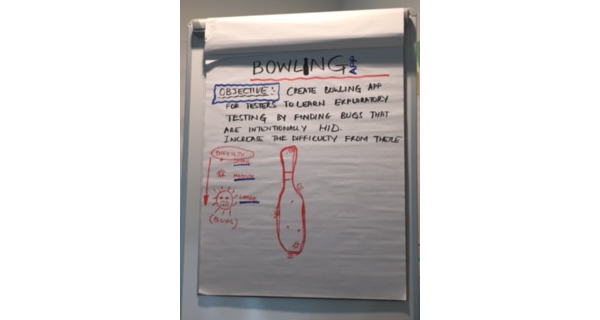 BOWLING APP
OBJECTIVE: CREATE BOWLING APP
FOR TESTERS TO LEARN EXPLORATORY
TESTING BY FINDING BUGS THAT
ARE INTENTIONALLY HID.
INCREASE THE DIFFICULTY FROM THERE
DIFFICULTY
(BUGS)